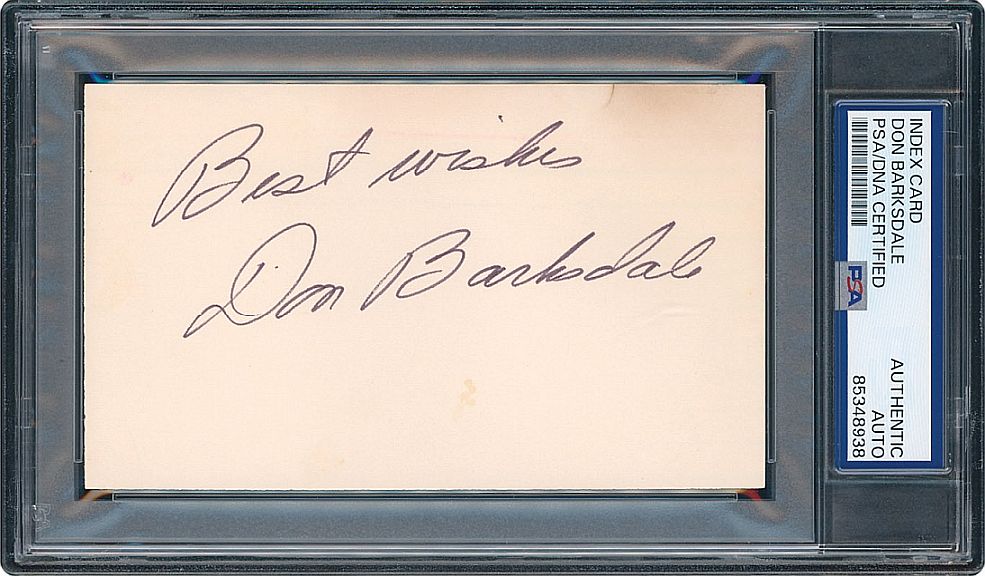 Best wishes
Don Barksdale
INDEX CARD
DON BARKSDALE
PSA/DNA CERTIFIED
PSA
AUTHENTIC
AUTO
85348938